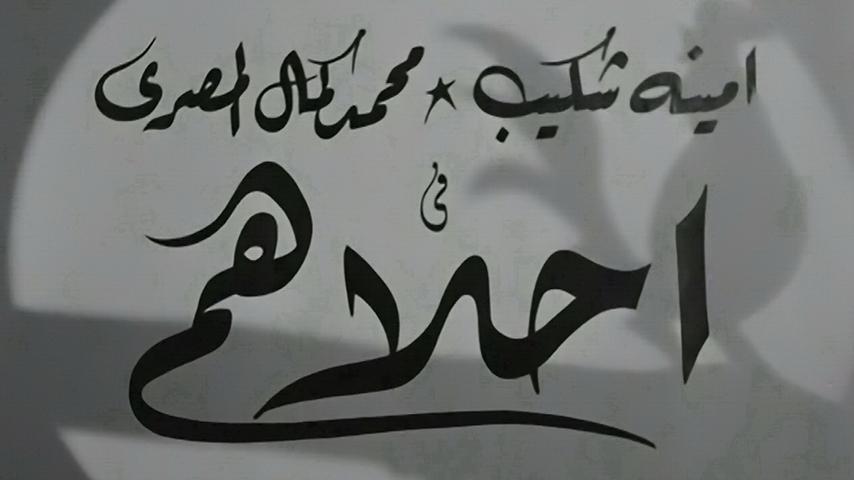 امينه شكيب ★ محمد كمال المصرى
فى
احلاهم